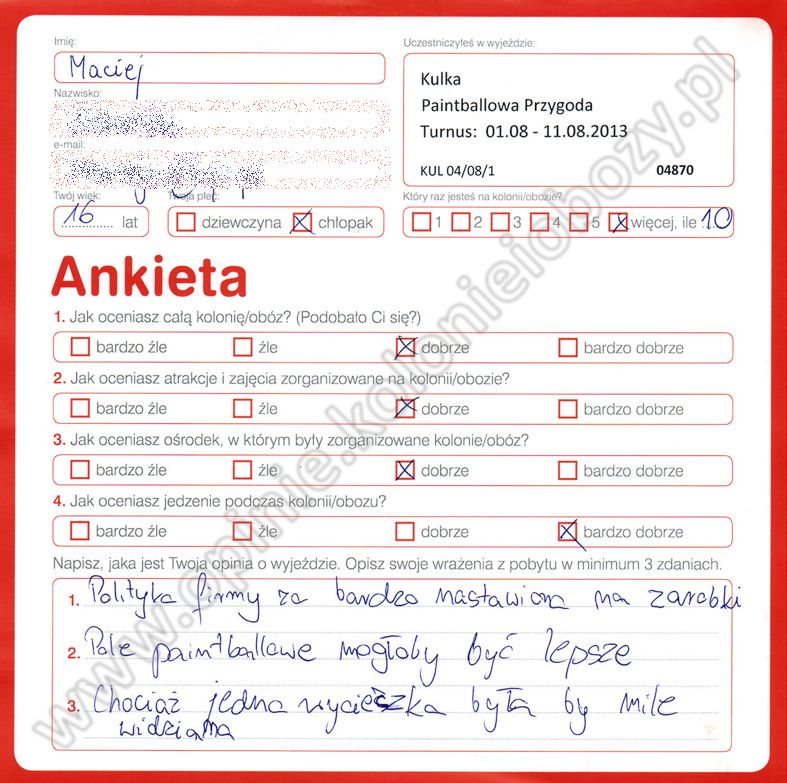 Imię:
Maciej
Uczestniczyłeś w wyjeździe:
Kulka
Paintballowa Przygoda
Turnus: 01.08 - 11.08.2013
KUL 04/08/1 04870
Nazwisko:
e-mail:
Twój wiek:
16 lat
Twoja płeć:
dziewczyna chłopak
Który raz jesteś na kolonii/obozie?
1 2 3 4 5 więcej, ile 10
Ankieta
1. Jak oceniasz całą kolonię/obóz? (Podobało Ci się?)
bardzo źle źle dobrze bardzo dobrze
2. Jak oceniasz atrakcje i zajęcia zorganizowane na kolonii/obozie?
bardzo źle źle dobrze bardzo dobrze
3. Jak oceniasz ośrodek, w którym były zorganizowane kolonie/obóz?
bardzo źle źle dobrze bardzo dobrze
4. Jak oceniasz jedzenie podczas kolonii/obozu?
bardzo źle źle dobrze bardzo dobrze
Napisz, jaka jest Twoja opinia o wyjeździe. Opisz swoje wrażenia z pobytu w minimum 3 zdaniach.
1. Polityka firmy za bardzo nastawiona na zarobki
2. Pole paintballowe mogłoby być lepsze
3. Chociaż jedna wycieczka była by mile
widziana
www.opinie.kolonieiobozy.pl